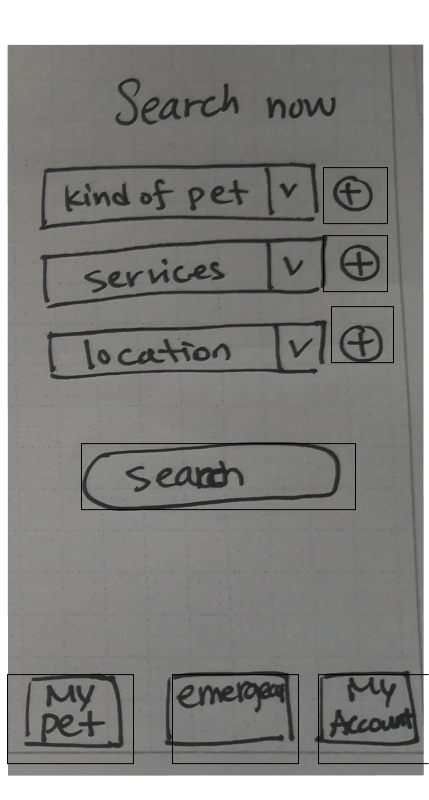 Search now
kind of pet v
services v
location v
search
My
pet
My
Account